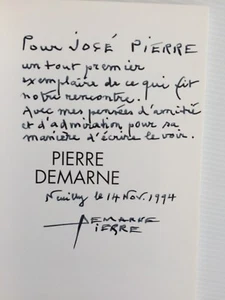 Pour JOSÉ PIERRE
un tout premier
exemplaire de ce qui fit
notre rencontre.
Avec mes pensées d'amitié
et d'admiration pour sa
manière d'écrire le voir.
PIERRE
DEMARNE
Neuilly le 14 Nov. 1994
DEMARNE
PIERRE